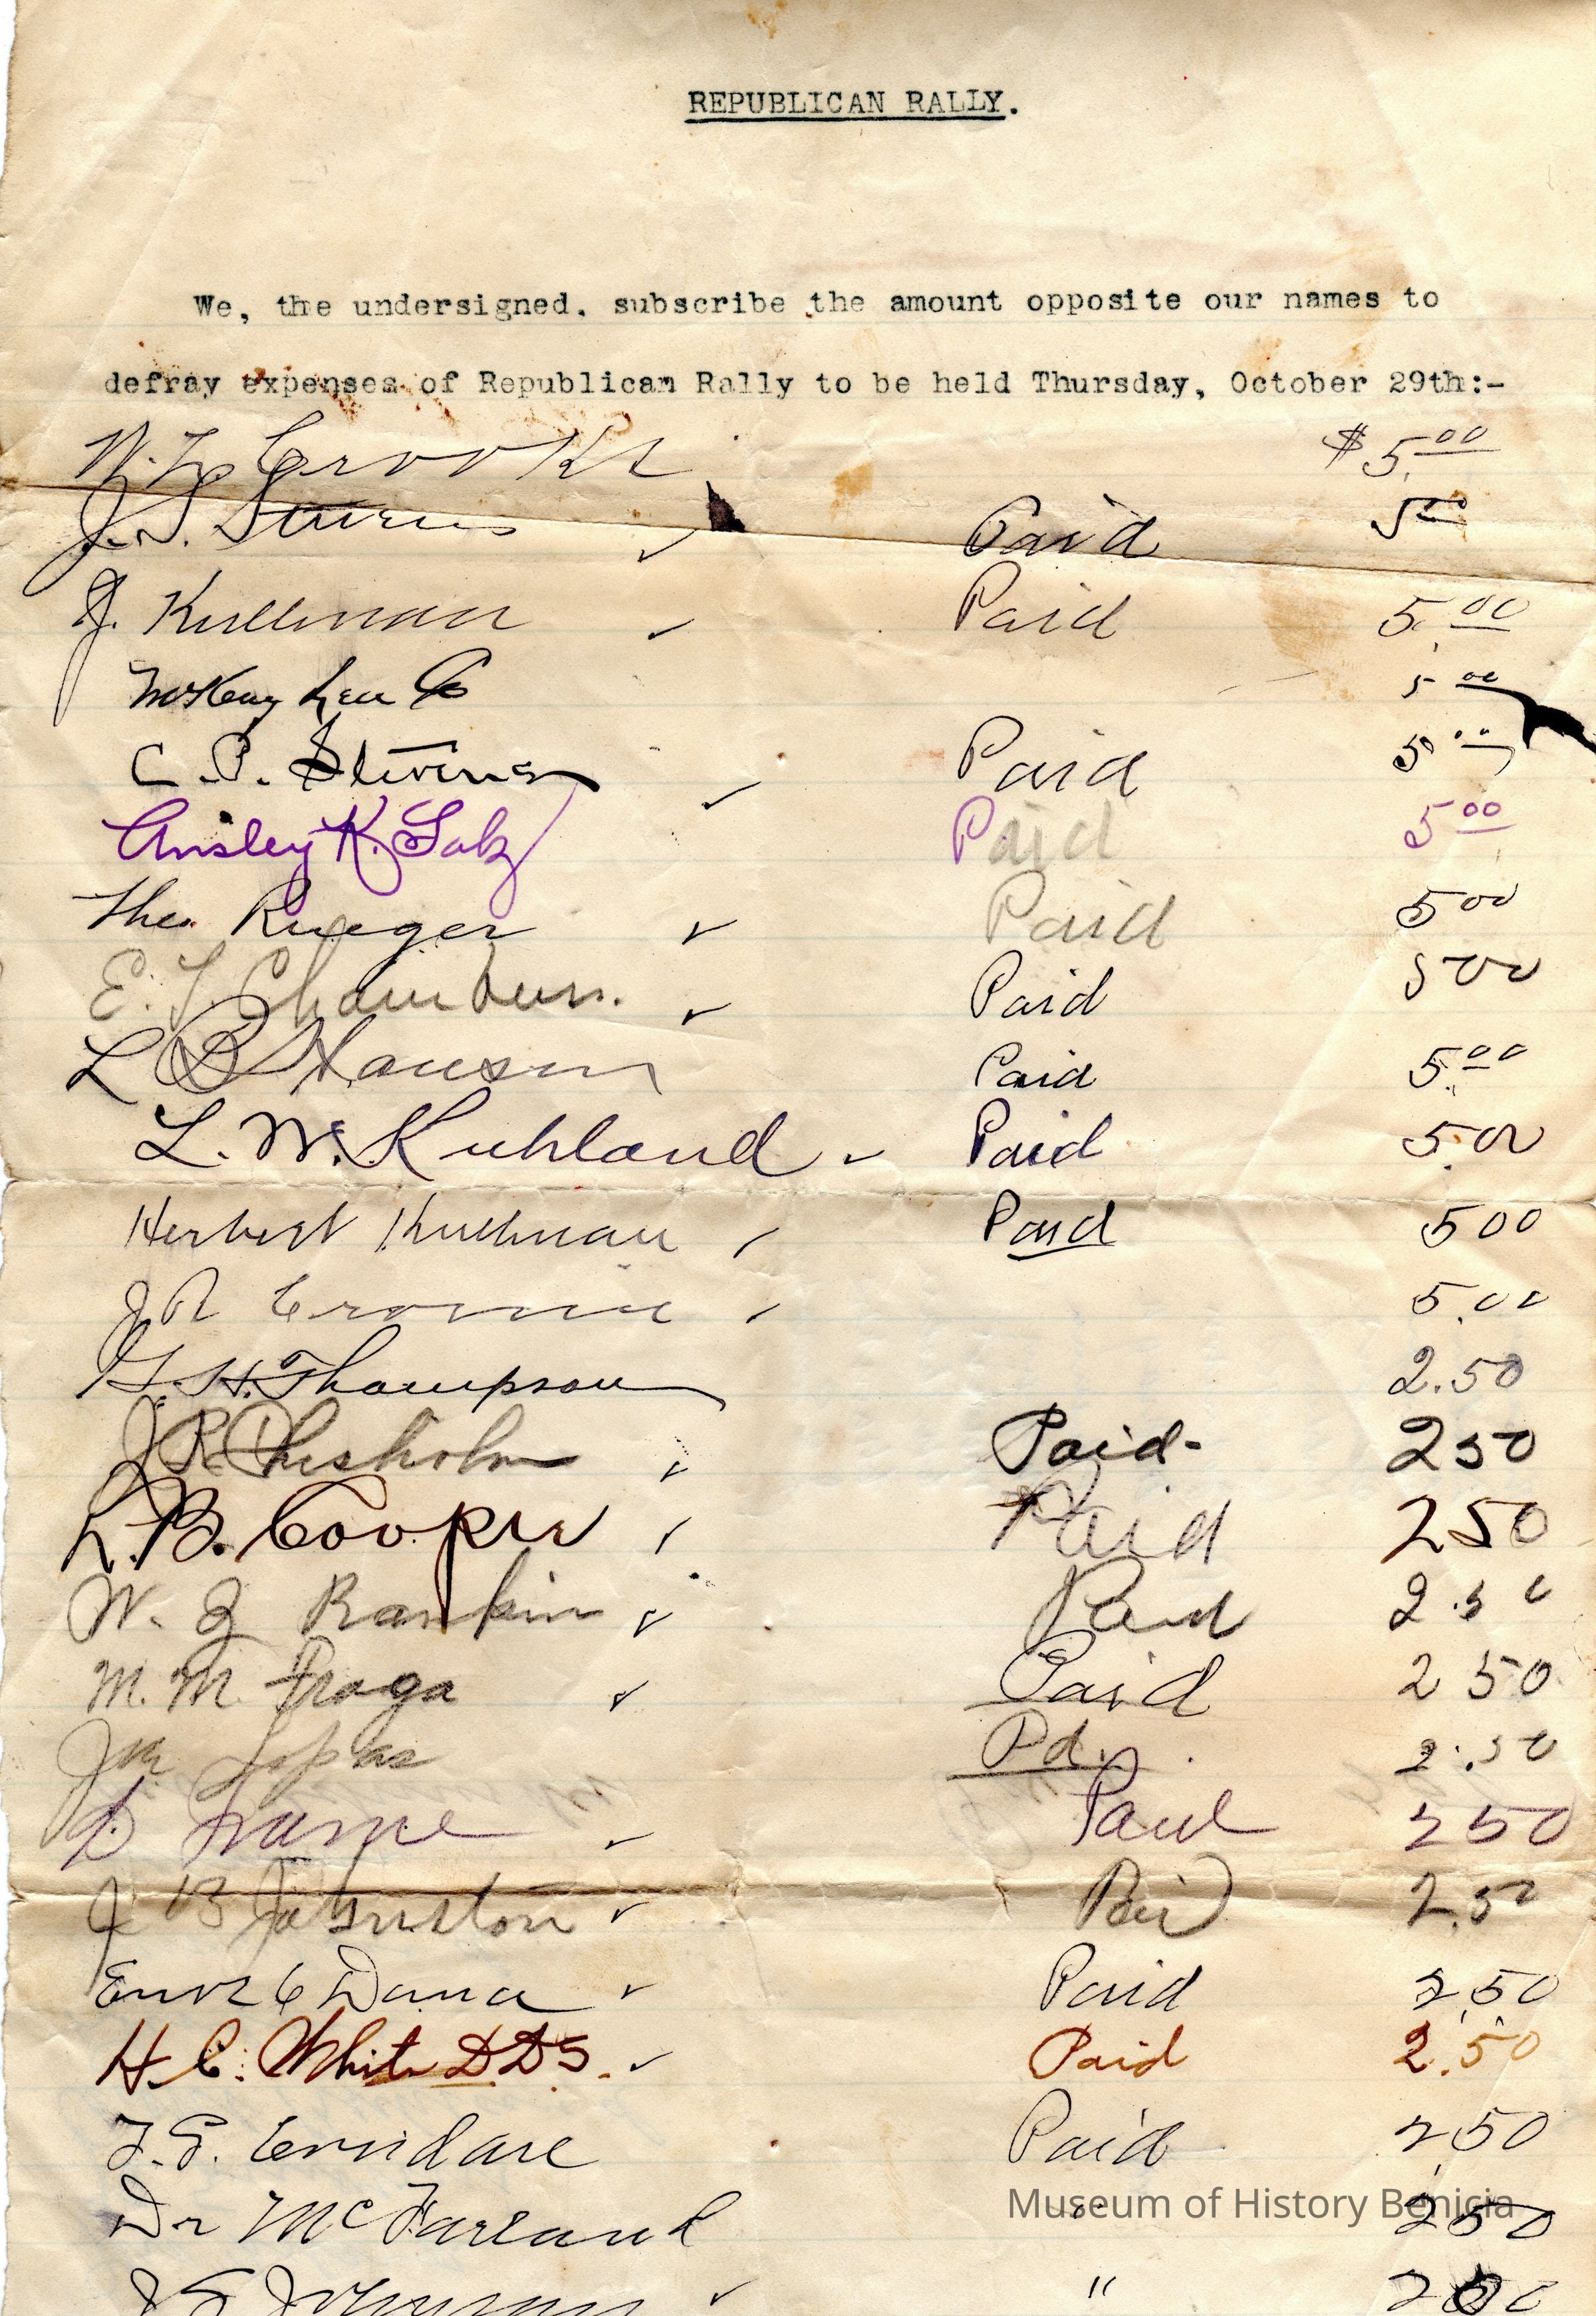 REPUBLICAN RALLY.
We, the undersigned, subscribe the amount opposite our names to
defray expenses of Republicam Rally to be held Thursday, October 29th:-
W. L. Crooks $5.00
J. S. Paid 5.00
J. Kullman ✓ Paid 5.00
McKay Co 5.00
C. P. Stevens ✓ Paid 5.00
Ansley K. Salz Paid 5.00
Theo. Rueger ✓ Paid 5 00
E. L. ✓ Paid 5 00
L B Hanson Paid 5.00
L. W. Kuhland ✓ Paid 5.00
Herbert Kullman ✓ Paid 5 00
J R ✓ 5.00
G. H. Thompson 2.50
J R Chisholm ✓ Paid- 2 50
L. B. Cooper ✓ Paid 2 50
W. J Rankin ✓ Paid 2.50
M. M. Fraga ✓ Paid 2 50
Jm Lopas Pd. 2.50
✓ Paid 2 50
J B Johnston ✓ Paid 2.50
C Dana ✓ Paid 2.50
H. C. White D.D.S. ✓ Paid 2.50
Paid 2.50
Dr McFarland " 2 50
Museum of History Benicia
J S Johnson ✓ "